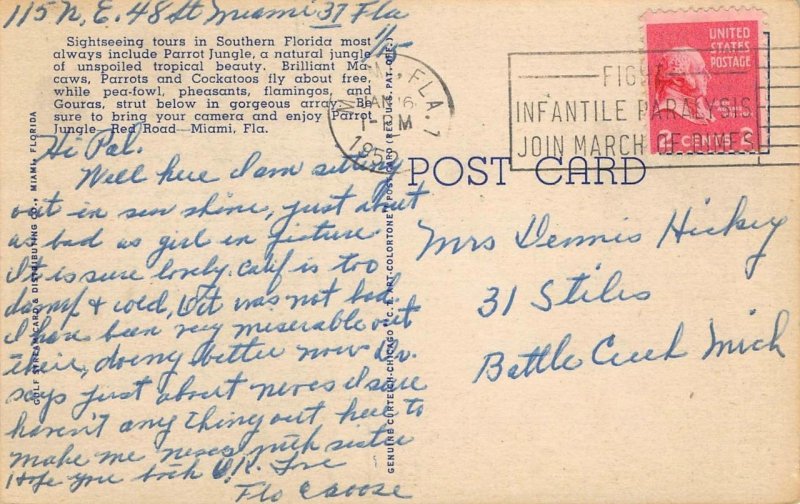 115 N. E. 48 St Miami 37 Fla
1/15
Sightseeing tours in Southern Florida most
always include Parrot Jungle, a natural jungle
of unspoiled tropical beauty. Brilliant Ma-
caws, Parrots and Cockatoos fly about free,
while pea-fowl, pheasants, flamingos, and
Gouras, strut below in gorgeous array. Be
sure to bring your camera and enjoy Parrot
Jungle—Red Road—Miami, Fla.
Hi Pal.
Well here I am sitting
out in sun shine, just about
as bad as girl in picture
It is sure lovely. Calif is too
damp & cold, but was not bad.
I have been very miserable out
there, doing better now Dr.
says just about nerves I sure
haven't anything out here to
make me nervous with sister
Hope you both O.K. Love
Flo
GULF STREAM CARD & DISTRIBUTING CO., MIAMI, FLORIDA
GENUINE CURTEICH-CHICAGO "C.T. ART-COLORTONE" POST CARD (REG. U.S. PAT. OFF.)
MIAMI, FLA.
JAN 16
1-PM
FIGHT
INFANTILE PARALYSIS
JOIN MARCH OF DIMES
UNITED
STATES
POSTAGE
2 CENTS 2
POST CARD
Mrs Dennis Hickey
31 Stiles
Battle Creek Mich